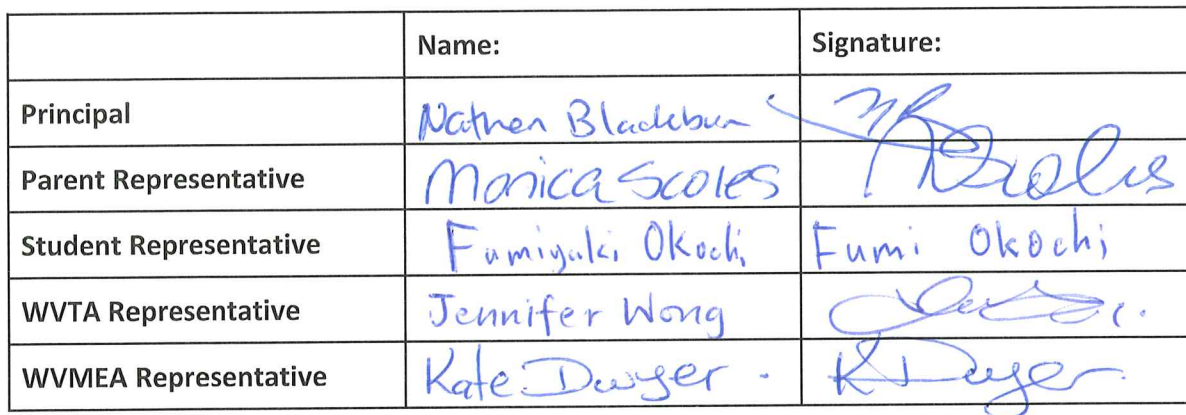 Name: Signature:
Principal Nathen Blackburn
Parent Representative Monica Scoles Scoles
Student Representative Fumiyuki Okochi Fumi Okochi
WVTA Representative Jennifer Wong
WVMEA Representative Kate Dwyer. K Dwyer.